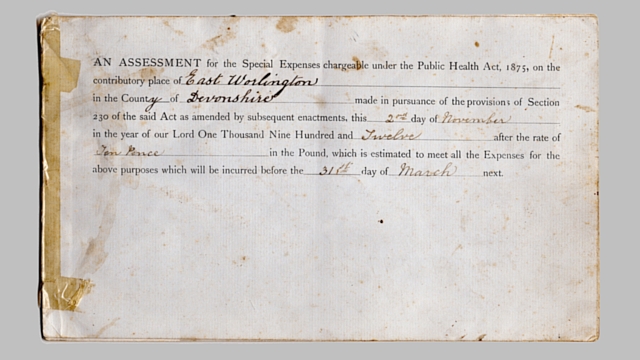 AN ASSESSMENT for the Special Expenses chargeable under the Public Health Act, 1875, on the
contributory place of East Worlington
in the County of Devonshire made in pursuance of the provisions of Section
230 of the said Act as amended by subsequent enactments, this 2nd day of November
in the year of our Lord One Thousand Nine Hundred and Twelve after the rate of
Ten Pence in the Pound, which is estimated to meet all the Expenses for the
above purposes which will be incurred before the 31st day of March next.